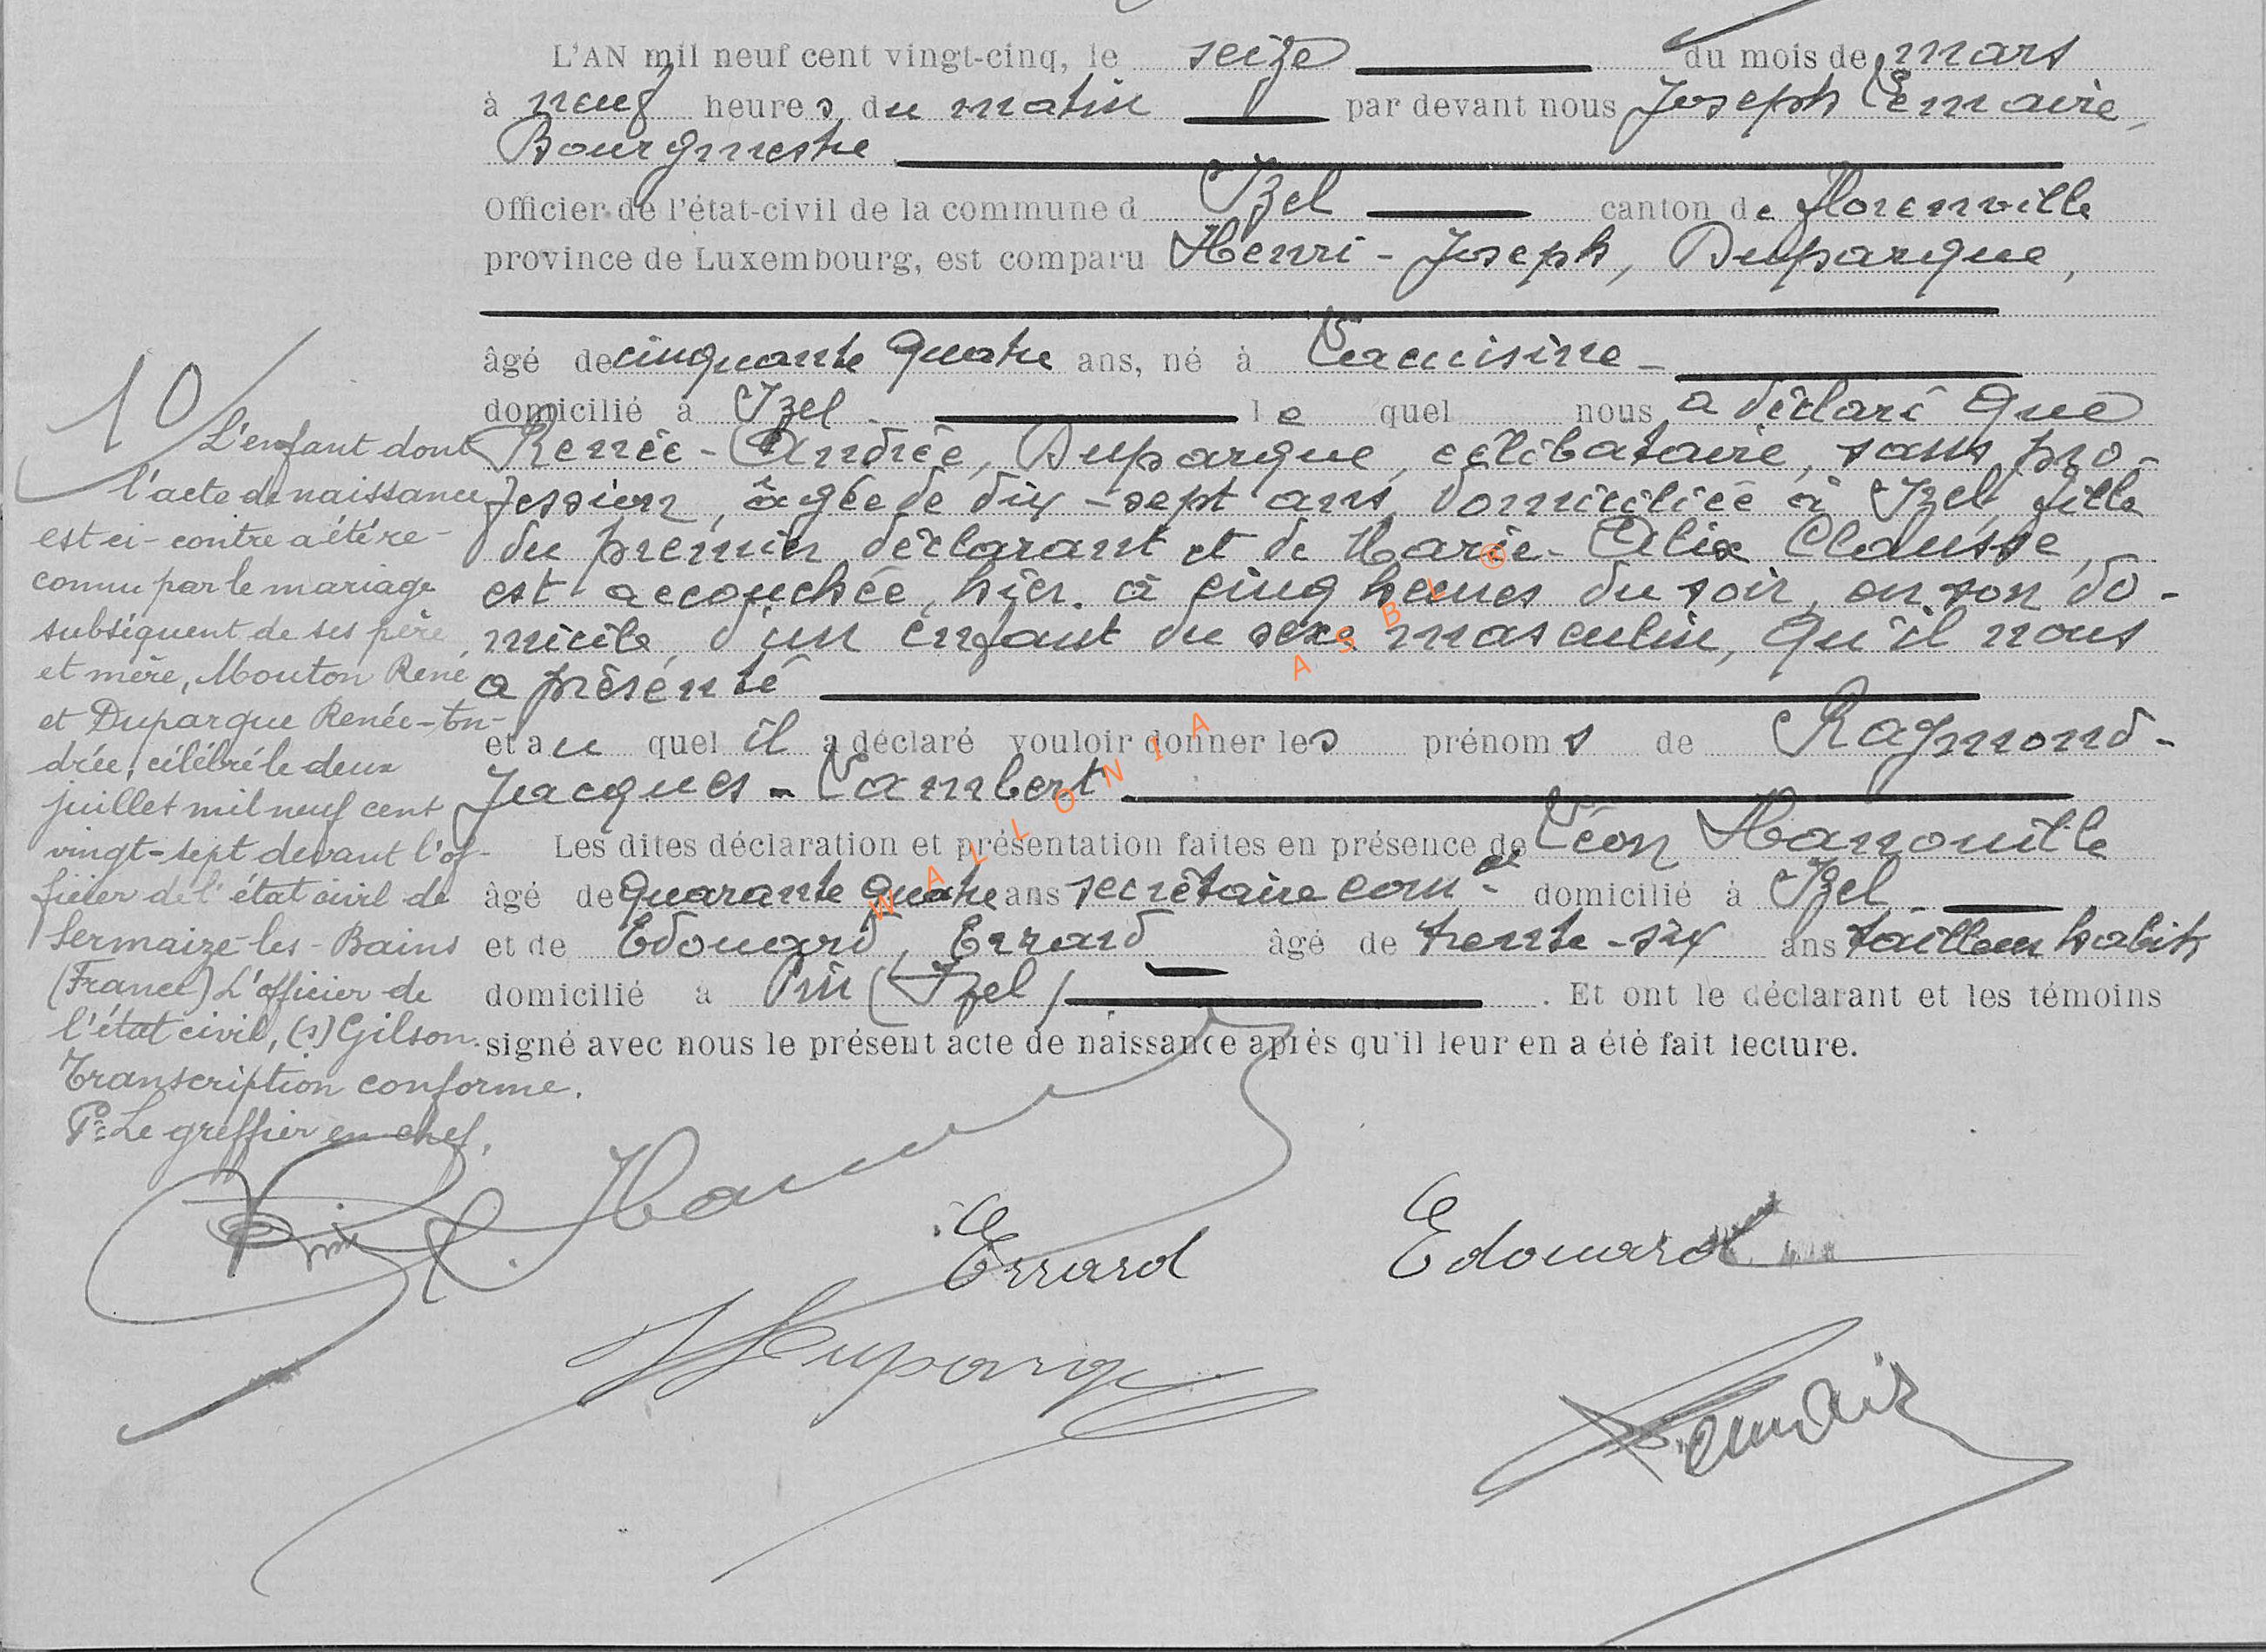 L'AN mil neuf cent vingt-cinq, le seize du mois de mars
à neuf heures du matin par devant nous Joseph Lemaire,
Bourgmestre
Officier de l'état-civil de la commune d Izel canton de Florenville
province de Luxembourg, est comparu Henri-Joseph, Duparque,
âgé de cinquante quatre ans, né à Lacuisine
domicilié à Izel le quel nous a déclaré que
Renée-Andrée, Duparque, célibataire, sans pro-
fession, âgée de dix-sept ans, domiciliée à Izel, fille
du premier déclarant et de Marie-Alix Clausse,
est accouchée, hier à cinq heures du soir, en son do-
micile, d'un enfant du sexe masculin, qu'il nous
a présenté
et au quel il a déclaré vouloir donner les prénoms de Raymond-
Jacques-Lambert.
Les dites déclaration et présentation faites en présence de Léon Hanouille
âgé de quarante quatre ans secrétaire com.al domicilié à Izel
et de Edouard, Errard âgé de trente-six ans tailleur habits
domicilié à Pin (Izel). Et ont le déclarant et les témoins
signé avec nous le présent acte de naissance après qu'il leur en a été fait lecture.
10
L'enfant dont
l'acte de naissance
est ci-contre a été re-
connu par le mariage
subséquent de ses père
et mère, Mouton René
et Duparque Renée-An-
drée, célébré le deux
juillet mil neuf cent
vingt-sept devant l'of-
ficier de l'état civil de
Sermaize-les-Bains
(France) L'officier de
l'état civil, (s) Gilson.
Transcription conforme.
Pr Le greffier en chef,
Errard Edouard
Duparq
Lemaire
WALLONIA ASBL ®